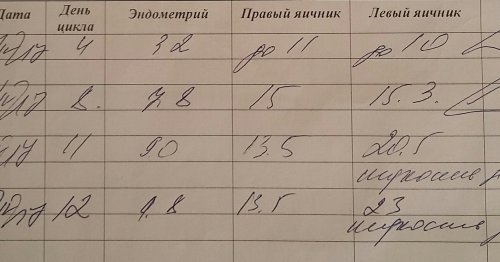 Дата День цикла Эндометрий Правый яичник Левый яичник
4 3.2 до 11 до 10
8. 7.8 15 15.3.
11 9.0 13.5 20.5
жидкость
12 9.8 13.5 23
жидкость